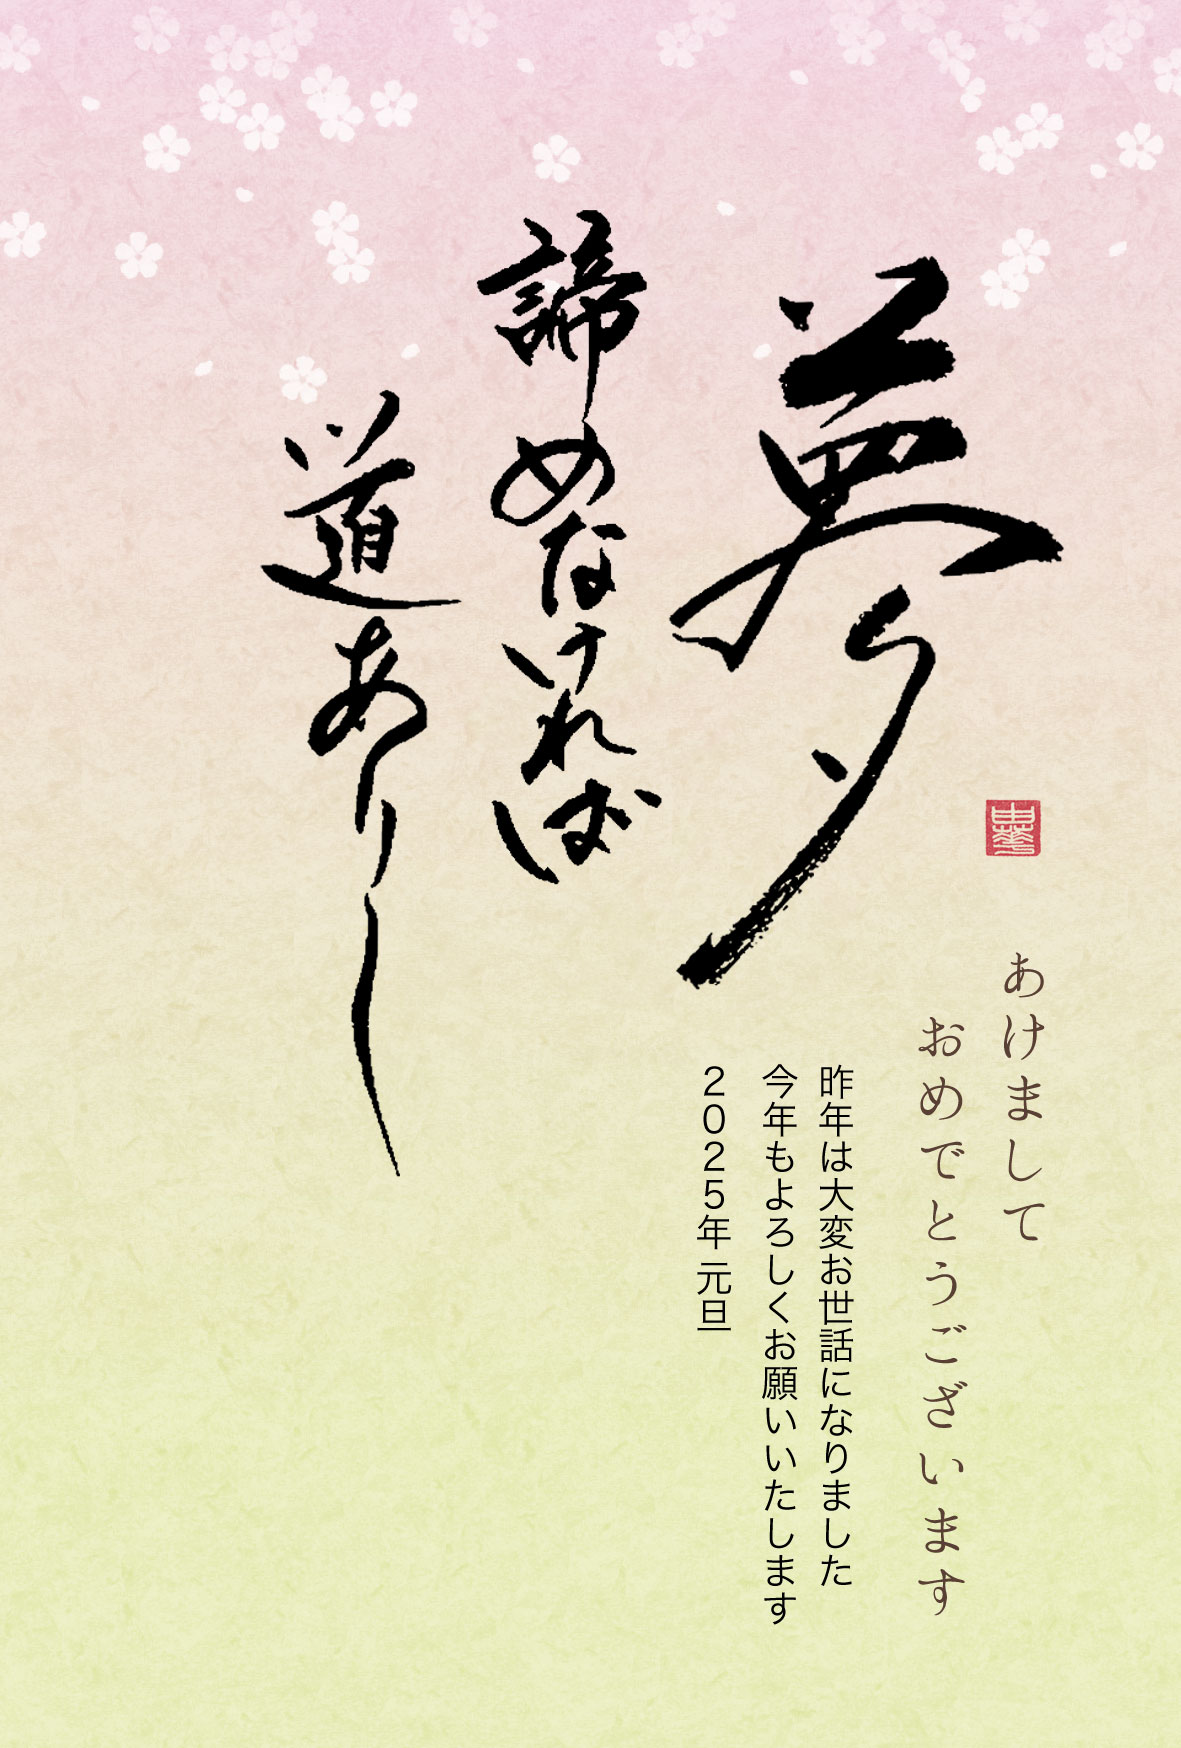 夢
諦めなければ
道ありし
あけまして
おめでとうございます
昨年は大変お世話になりました
今年もよろしくお願いいたします
2025年 元旦